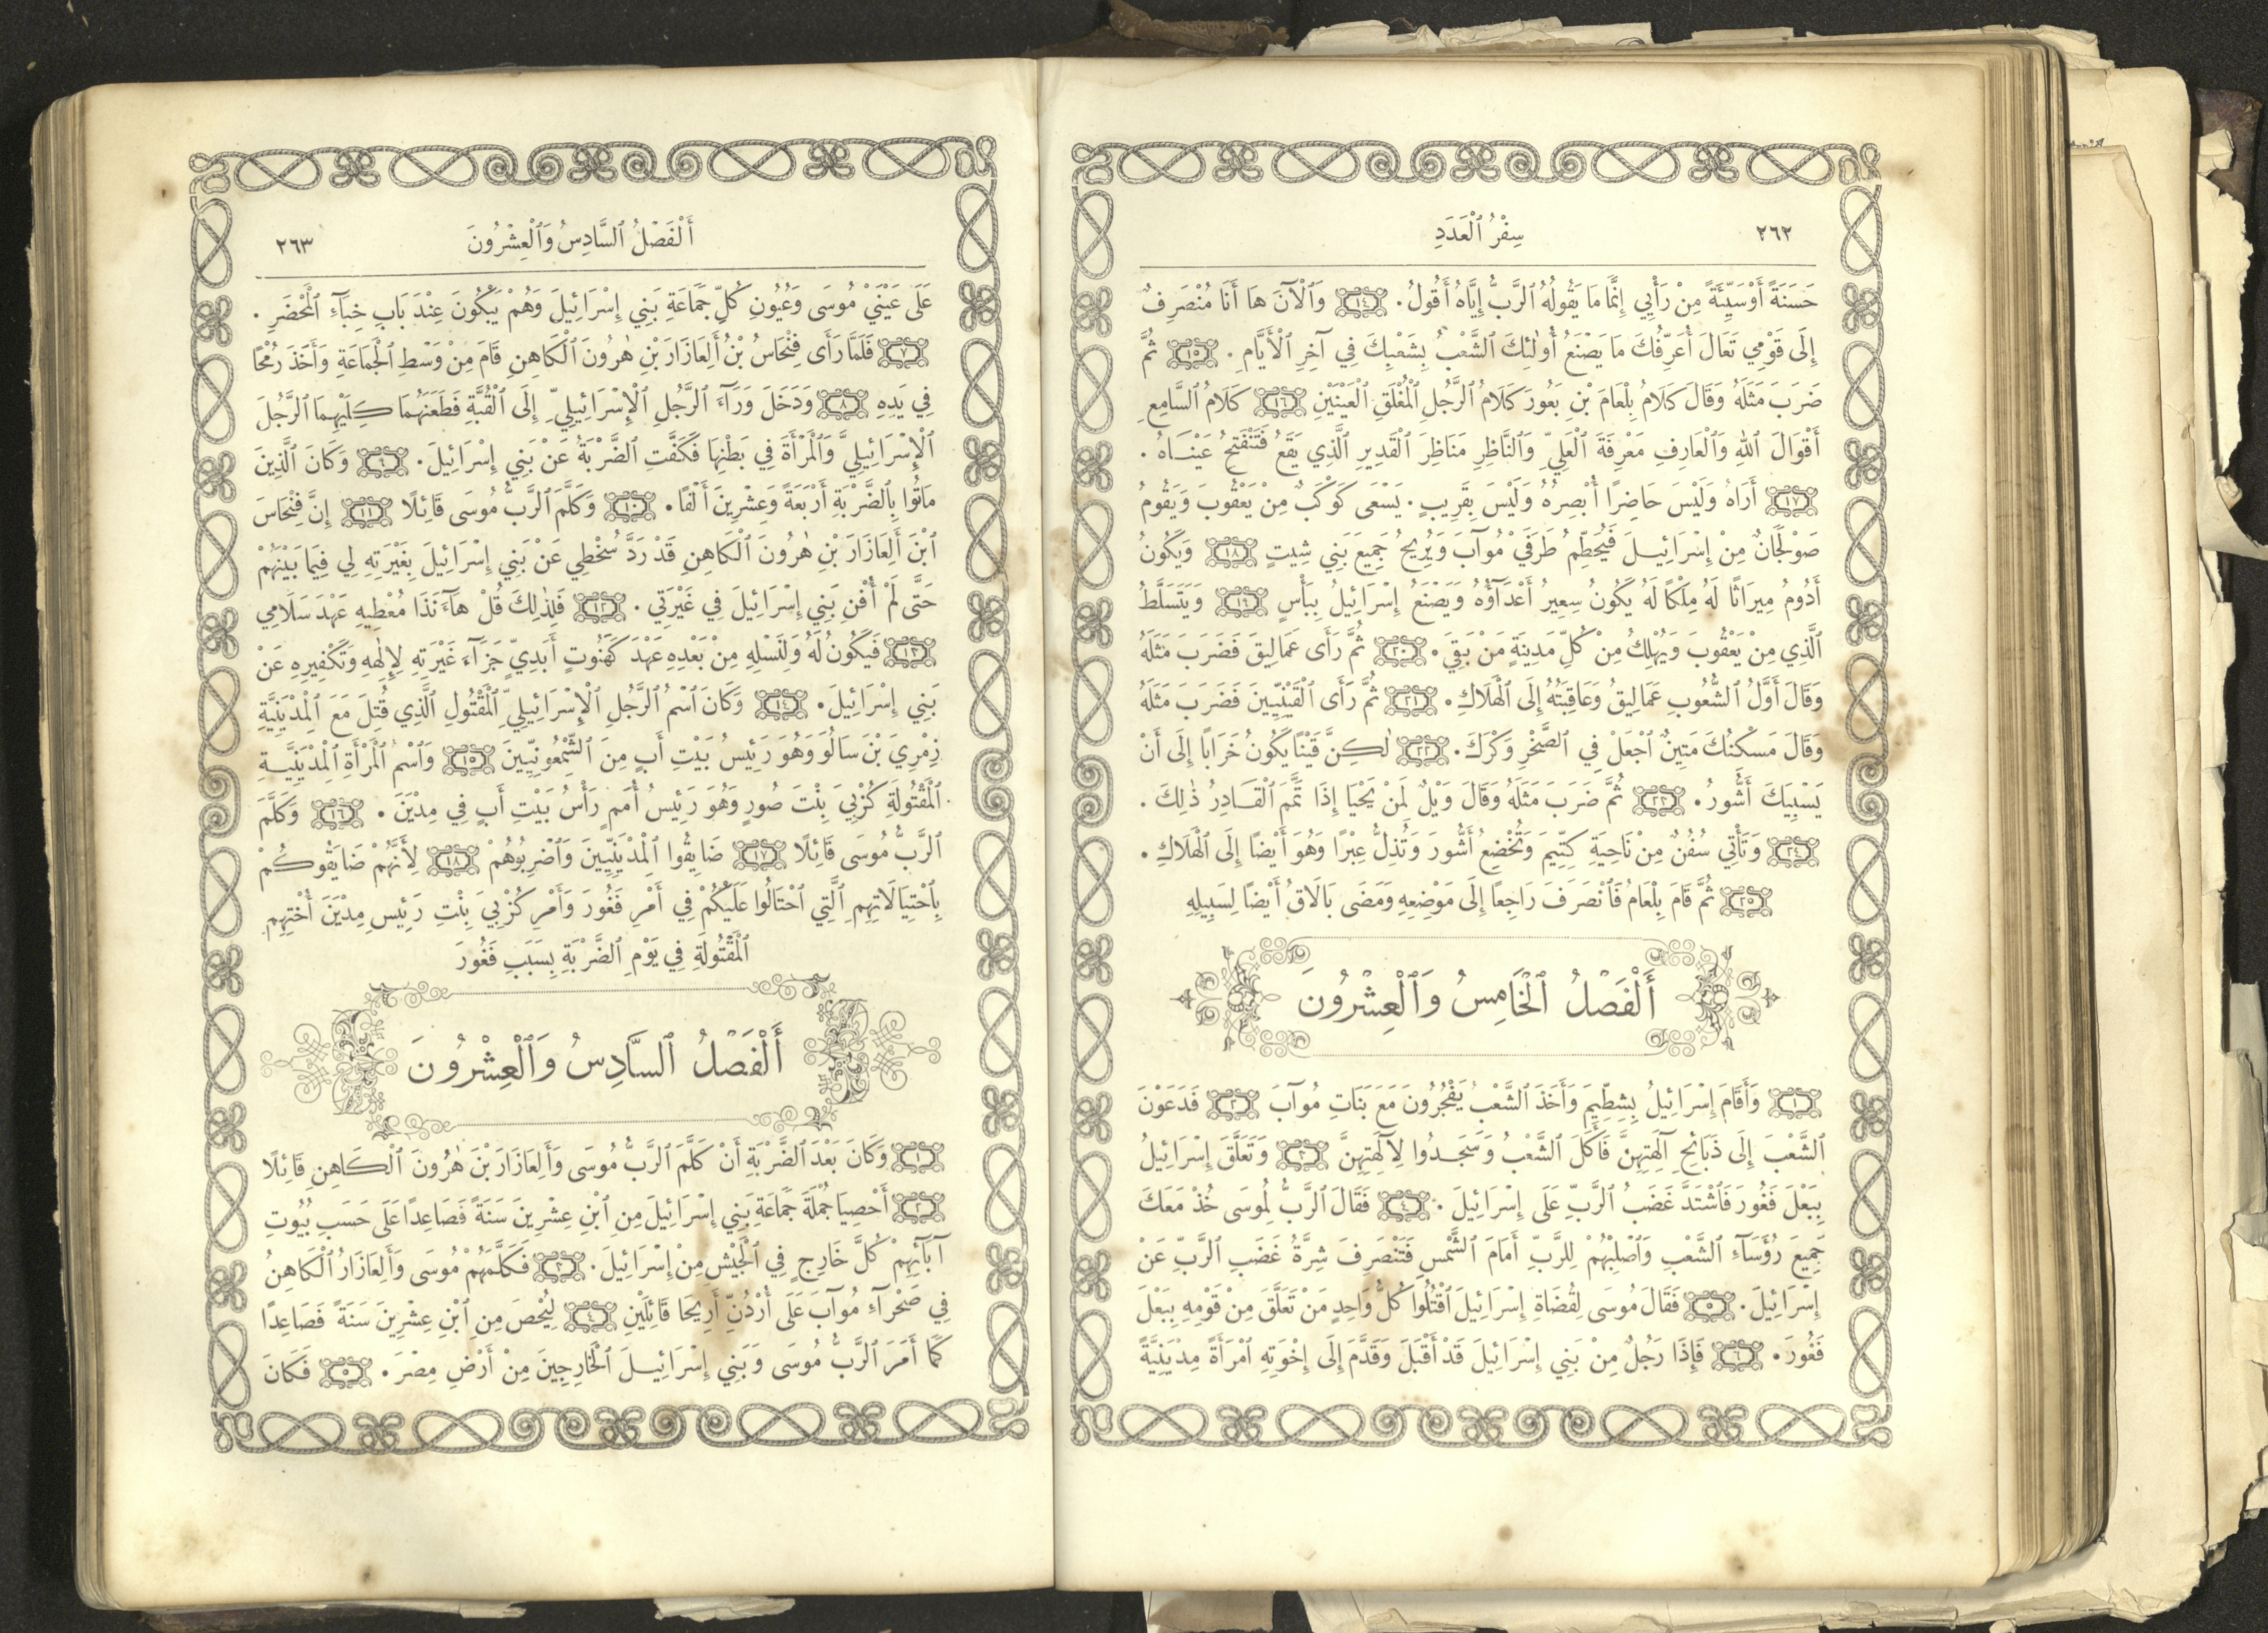 ٢٦٢ سِفْرُ ٱلْعَدَدِ
حَسَنَةً أَوْ سَيِّئَةً مِنْ رَأْيِي إِنَّمَا مَا يَقُولُهُ ٱلرَّبُّ إِيَّاهُ أَقُولُ. ١٤ وَٱلْآنَ هَا أَنَا مُنْصَرِفٌ
إِلَى قَوْمِي تَعَالَ أُعَرِّفُكَ مَا يَصْنَعُ أُولٰئِكَ ٱلشَّعْبُ بِشَعْبِكَ فِي آخِرِ ٱلْأَيَّامِ. ١٥ ثُمَّ
ضَرَبَ مَثَلَهُ وَقَالَ كَلَامُ بِلْعَامَ بْنِ بَعُورَ كَلَامُ ٱلرَّجُلِ ٱلْمُغْلَقِ ٱلْعَيْنَيْنِ ١٦ كَلَامُ ٱلسَّامِعِ
أَقْوَالَ ٱللهِ وَٱلْعَارِفِ مَعْرِفَةَ ٱلْعَلِيِّ وَٱلنَّاظِرِ مَنَاظِرَ ٱلْقَدِيرِ ٱلَّذِي يَقَعُ فَتَنْفَتِحُ عَيْنَاهُ.
١٧ أَرَاهُ وَلَيْسَ حَاضِرًا أُبْصِرُهُ وَلَيْسَ بِقَرِيبٍ. يَسْعَى كَوْكَبٌ مِنْ يَعْقُوبَ وَيَقُومُ
صَوْلَجَانٌ مِنْ إِسْرَائِيلَ فَيُحَطِّمُ طَرَفَيْ مُوآبَ وَيُرِيحُ جَمِيعَ بَنِي شِيتٍ ١٨ وَيَكُونُ
أَدُومُ مِيرَاثًا لَهُ مِلْكًا لَهُ يَكُونُ سِعِيرُ أَعْدَآؤُهُ وَيَصْنَعُ إِسْرَائِيلُ بِبَأْسٍ ١٩ وَيَتَسَلَّطُ
ٱلَّذِي مِنْ يَعْقُوبَ وَيُهْلِكُ مِنْ كُلِّ مَدِينَةٍ مَنْ بَقِيَ. ٢٠ ثُمَّ رَأَى عَمَالِيقَ فَضَرَبَ مَثَلَهُ
وَقَالَ أَوَّلُ ٱلشُّعُوبِ عَمَالِيقُ وَعَاقِبَتُهُ إِلَى ٱلْهَلَاكِ. ٢١ ثُمَّ رَأَى ٱلْقَيْنِيِّينَ فَضَرَبَ مَثَلَهُ
وَقَالَ مَسْكِنُكَ مَتِينٌ ٱجْعَلْ فِي ٱلصَّخْرِ وَكْرَكَ. ٢٢ لٰكِنَّ قَيْنًا يَكُونُ خَرَابًا إِلَى أَنْ
يَسْبِيَكَ أَشُّورُ. ٢٣ ثُمَّ ضَرَبَ مَثَلَهُ وَقَالَ وَيْلٌ لِمَنْ يَحْيَا إِذَا تَمَّمَ ٱلْقَادِرُ ذٰلِكَ.
٢٤ وَتَأْتِي سُفُنٌ مِنْ نَاحِيَةِ كِتِّيمَ وَتُخْضِعُ أَشُّورَ وَتُذِلُّ عِبْرًا وَهُوَ أَيْضًا إِلَى ٱلْهَلَاكِ.
٢٥ ثُمَّ قَامَ بِلْعَامُ فَٱنْصَرَفَ رَاجِعًا إِلَى مَوْضِعِهِ وَمَضَى بَالَاقُ أَيْضًا لِسَبِيلِهِ
أَلْفَصْلُ ٱلْخَامِسُ وَٱلْعِشْرُونَ
١ وَأَقَامَ إِسْرَائِيلُ بِشِطِّيمَ وَأَخَذَ ٱلشَّعْبُ يَفْجُرُونَ مَعَ بَنَاتِ مُوآبَ ٢ فَدَعَوْنَ
ٱلشَّعْبَ إِلَى ذَبَائِحِ آلِهَتِهِنَّ فَأَكَلَ ٱلشَّعْبُ وَسَجَدُوا لِآلِهَتِهِنَّ ٣ وَتَعَلَّقَ إِسْرَائِيلُ
بِبَعْلَ فَغُورَ فَٱشْتَدَّ غَضَبُ ٱلرَّبِّ عَلَى إِسْرَائِيلَ. ٤ فَقَالَ ٱلرَّبُّ لِمُوسَى خُذْ مَعَكَ
جَمِيعَ رُؤَسَآءِ ٱلشَّعْبِ وَٱصْلِبْهُمْ لِلرَّبِّ أَمَامَ ٱلشَّمْسِ فَتَنْصَرِفَ شِرَّةُ غَضَبِ ٱلرَّبِّ عَنْ
إِسْرَائِيلَ. ٥ فَقَالَ مُوسَى لِقُضَاةِ إِسْرَائِيلَ ٱقْتُلُوا كُلُّ وَاحِدٍ مَنْ تَعَلَّقَ مِنْ قَوْمِهِ بِبَعْلَ
فَغُورَ. ٦ فَإِذَا رَجُلٌ مِنْ بَنِي إِسْرَائِيلَ قَدْ أَقْبَلَ وَقَدَّمَ إِلَى إِخْوَتِهِ ٱمْرَأَةً مِدْيَنِيَّةً
أَلْفَصْلُ ٱلسَّادِسُ وَٱلْعِشْرُونَ ٢٦٣
عَلَى عَيْنَيْ مُوسَى وَعُيُونِ كُلِّ جَمَاعَةِ بَنِي إِسْرَائِيلَ وَهُمْ يَبْكُونَ عِنْدَ بَابِ خِبَآءِ ٱلْمَحْضَرِ.
٧ فَلَمَّا رَأَى فِنْحَاسُ بْنُ أَلِعَازَارَ بْنِ هٰرُونَ ٱلْكَاهِنِ قَامَ مِنْ وَسْطِ ٱلْجَمَاعَةِ وَأَخَذَ رُمْحًا
فِي يَدِهِ ٨ وَدَخَلَ وَرَآءَ ٱلرَّجُلِ ٱلْإِسْرَائِيلِيِّ إِلَى ٱلْقُبَّةِ فَطَعَنَهُمَا كِلَيْهِمَا ٱلرَّجُلَ
ٱلْإِسْرَائِيلِيَّ وَٱلْمَرْأَةَ فِي بَطْنِهَا فَكَفَّتِ ٱلضَّرْبَةُ عَنْ بَنِي إِسْرَائِيلَ. ٩ وَكَانَ ٱلَّذِينَ
مَاتُوا بِٱلضَّرْبَةِ أَرْبَعَةً وَعِشْرِينَ أَلْفًا. ١٠ وَكَلَّمَ ٱلرَّبُّ مُوسَى قَائِلًا ١١ إِنَّ فِنْحَاسَ
ٱبْنَ أَلِعَازَارَ بْنِ هٰرُونَ ٱلْكَاهِنِ قَدْ رَدَّ سُخْطِي عَنْ بَنِي إِسْرَائِيلَ بِغَيْرَتِهِ لِي فِيمَا بَيْنَهُمْ
حَتَّى لَمْ أُفْنِ بَنِي إِسْرَائِيلَ فِي غَيْرَتِي. ١٢ فَلِذٰلِكَ قُلْ هَآءَنَذَا مُعْطِيهِ عَهْدَ سَلَامِي
١٣ فَيَكُونُ لَهُ وَلِنَسْلِهِ مِنْ بَعْدِهِ عَهْدَ كَهَنُوتٍ أَبَدِيٍّ جَزَآءَ غَيْرَتِهِ لِإِلٰهِهِ وَتَكْفِيرِهِ عَنْ
بَنِي إِسْرَائِيلَ. ١٤ وَكَانَ ٱسْمُ ٱلرَّجُلِ ٱلْإِسْرَائِيلِيِّ ٱلْمَقْتُولِ ٱلَّذِي قُتِلَ مَعَ ٱلْمِدْيَنِيَّةِ
زِمْرِيَ بْنَ سَالُوَ وَهُوَ رَئِيسُ بَيْتِ أَبٍ مِنَ ٱلشِّمْعُونِيِّينَ ١٥ وَٱسْمُ ٱلْمَرْأَةِ ٱلْمِدْيَنِيَّةِ
ٱلْمَقْتُولَةِ كُزْبِيَ بِنْتَ صُورٍ وَهُوَ رَئِيسُ أُمَمٍ رَأْسُ بَيْتِ أَبٍ فِي مِدْيَنَ. ١٦ وَكَلَّمَ
ٱلرَّبُّ مُوسَى قَائِلًا ١٧ ضَايِقُوا ٱلْمِدْيَنِيِّينَ وَٱضْرِبُوهُمْ ١٨ لِأَنَّهُمْ ضَايَقُوكُمْ
بِٱحْتِيَالَاتِهِمِ ٱلَّتِي ٱحْتَالُوا عَلَيْكُمْ فِي أَمْرِ فَغُورَ وَأَمْرِ كُزْبِيَ بِنْتِ رَئِيسِ مِدْيَنَ أُخْتِهِمِ
ٱلْمَقْتُولَةِ فِي يَوْمِ ٱلضَّرْبَةِ بِسَبَبِ فَغُورَ
أَلْفَصْلُ ٱلسَّادِسُ وَٱلْعِشْرُونَ
١ وَكَانَ بَعْدَ ٱلضَّرْبَةِ أَنْ كَلَّمَ ٱلرَّبُّ مُوسَى وَأَلِعَازَارَ بْنَ هٰرُونَ ٱلْكَاهِنِ قَائِلًا
٢ أَحْصِيَا جُمْلَةَ جَمَاعَةِ بَنِي إِسْرَائِيلَ مِنِ ٱبْنِ عِشْرِينَ سَنَةً فَصَاعِدًا عَلَى حَسَبِ بُيُوتِ
آبَآئِهِمْ كُلَّ خَارِجٍ فِي ٱلْجَيْشِ مِنْ إِسْرَائِيلَ. ٣ فَكَلَّمَهُمْ مُوسَى وَأَلِعَازَارُ ٱلْكَاهِنُ
فِي صَحْرَآءِ مُوآبَ عَلَى أُرْدُنِّ أَرِيحَا قَائِلَيْنِ ٤ لِيُحْصَ مِنِ ٱبْنِ عِشْرِينَ سَنَةً فَصَاعِدًا
كَمَا أَمَرَ ٱلرَّبُّ مُوسَى وَبَنِي إِسْرَائِيلَ ٱلْخَارِجِينَ مِنْ أَرْضِ مِصْرَ. ٥ فَكَانَ